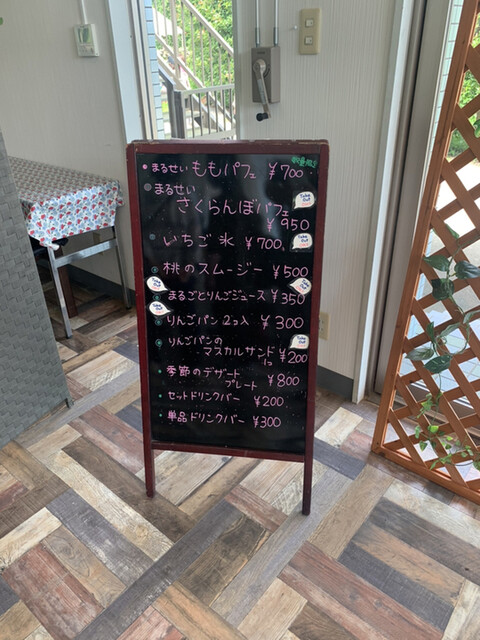 数量限定
• まるせいももパフェ ¥700
• まるせい
さくらんぼパフェ
Take Out
¥950
• いちご氷 ¥700、
Take Out
• 桃のスムージー ¥500
• まるごとりんごジュース ¥350
• りんごパン 2コ入 ¥300
• りんごパンの
Take Out
マスカルサンド
1コ ¥200
• 季節のデザート
プレート ¥800
• セットドリンクバー ¥200
• 単品ドリンクバー ¥300